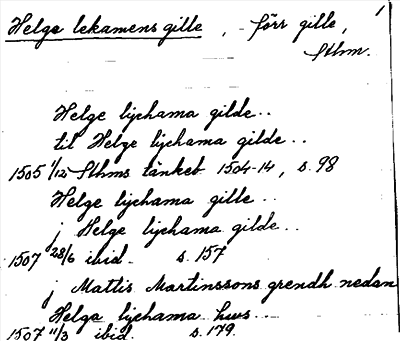 Helga lekamens gille, - förr gille, 1
Sthm.
Helge lychama gilde..
til Helge lychama gilde..
1505 1/12 Sthms tänkeb 1504-14, s. 98
Helge lychama gille..
j Helge lychama gilde..
1507 28/6 ibid. s. 157
j Mattis Martinssons grendh nedan
Helga lychama hws...
1507 11/3 ibid. s. 179.